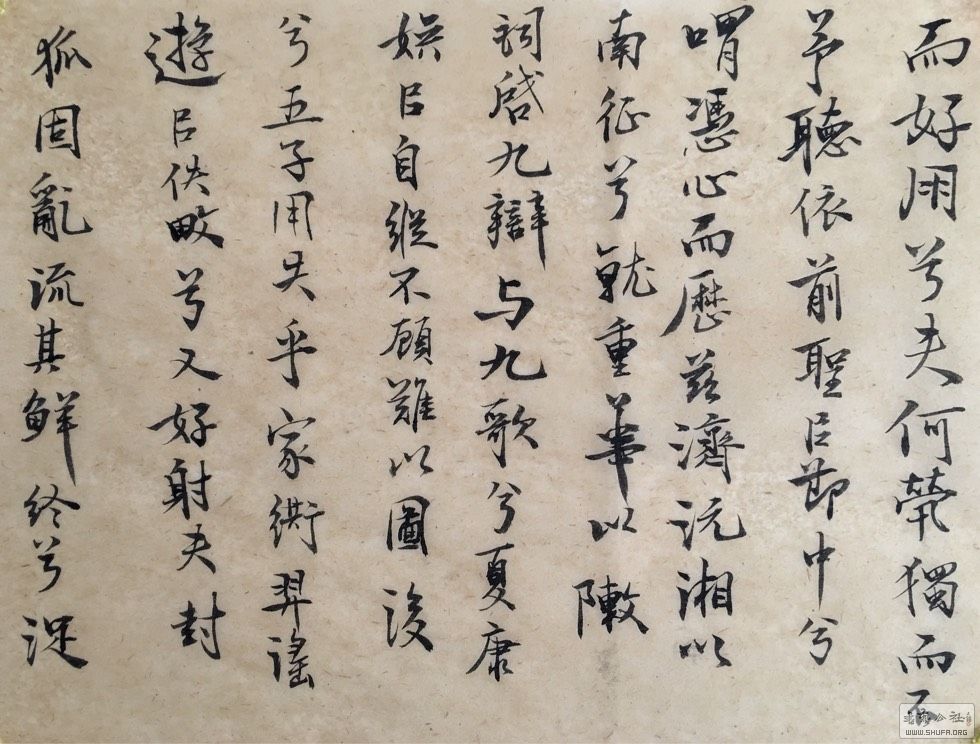 而好朋兮夫何煢獨而不
予聽依前聖㠯節中兮
喟憑心而歷茲濟沅湘以
南征兮就重華以敶
詞啓九辯与九歌兮夏康
娛㠯自縱不顧難以圖後
兮五子用失乎家衖羿謠
遊㠯佚畋兮又好射夫封
狐固亂流其鮮終兮浞
WWW.SHUFA.ORG